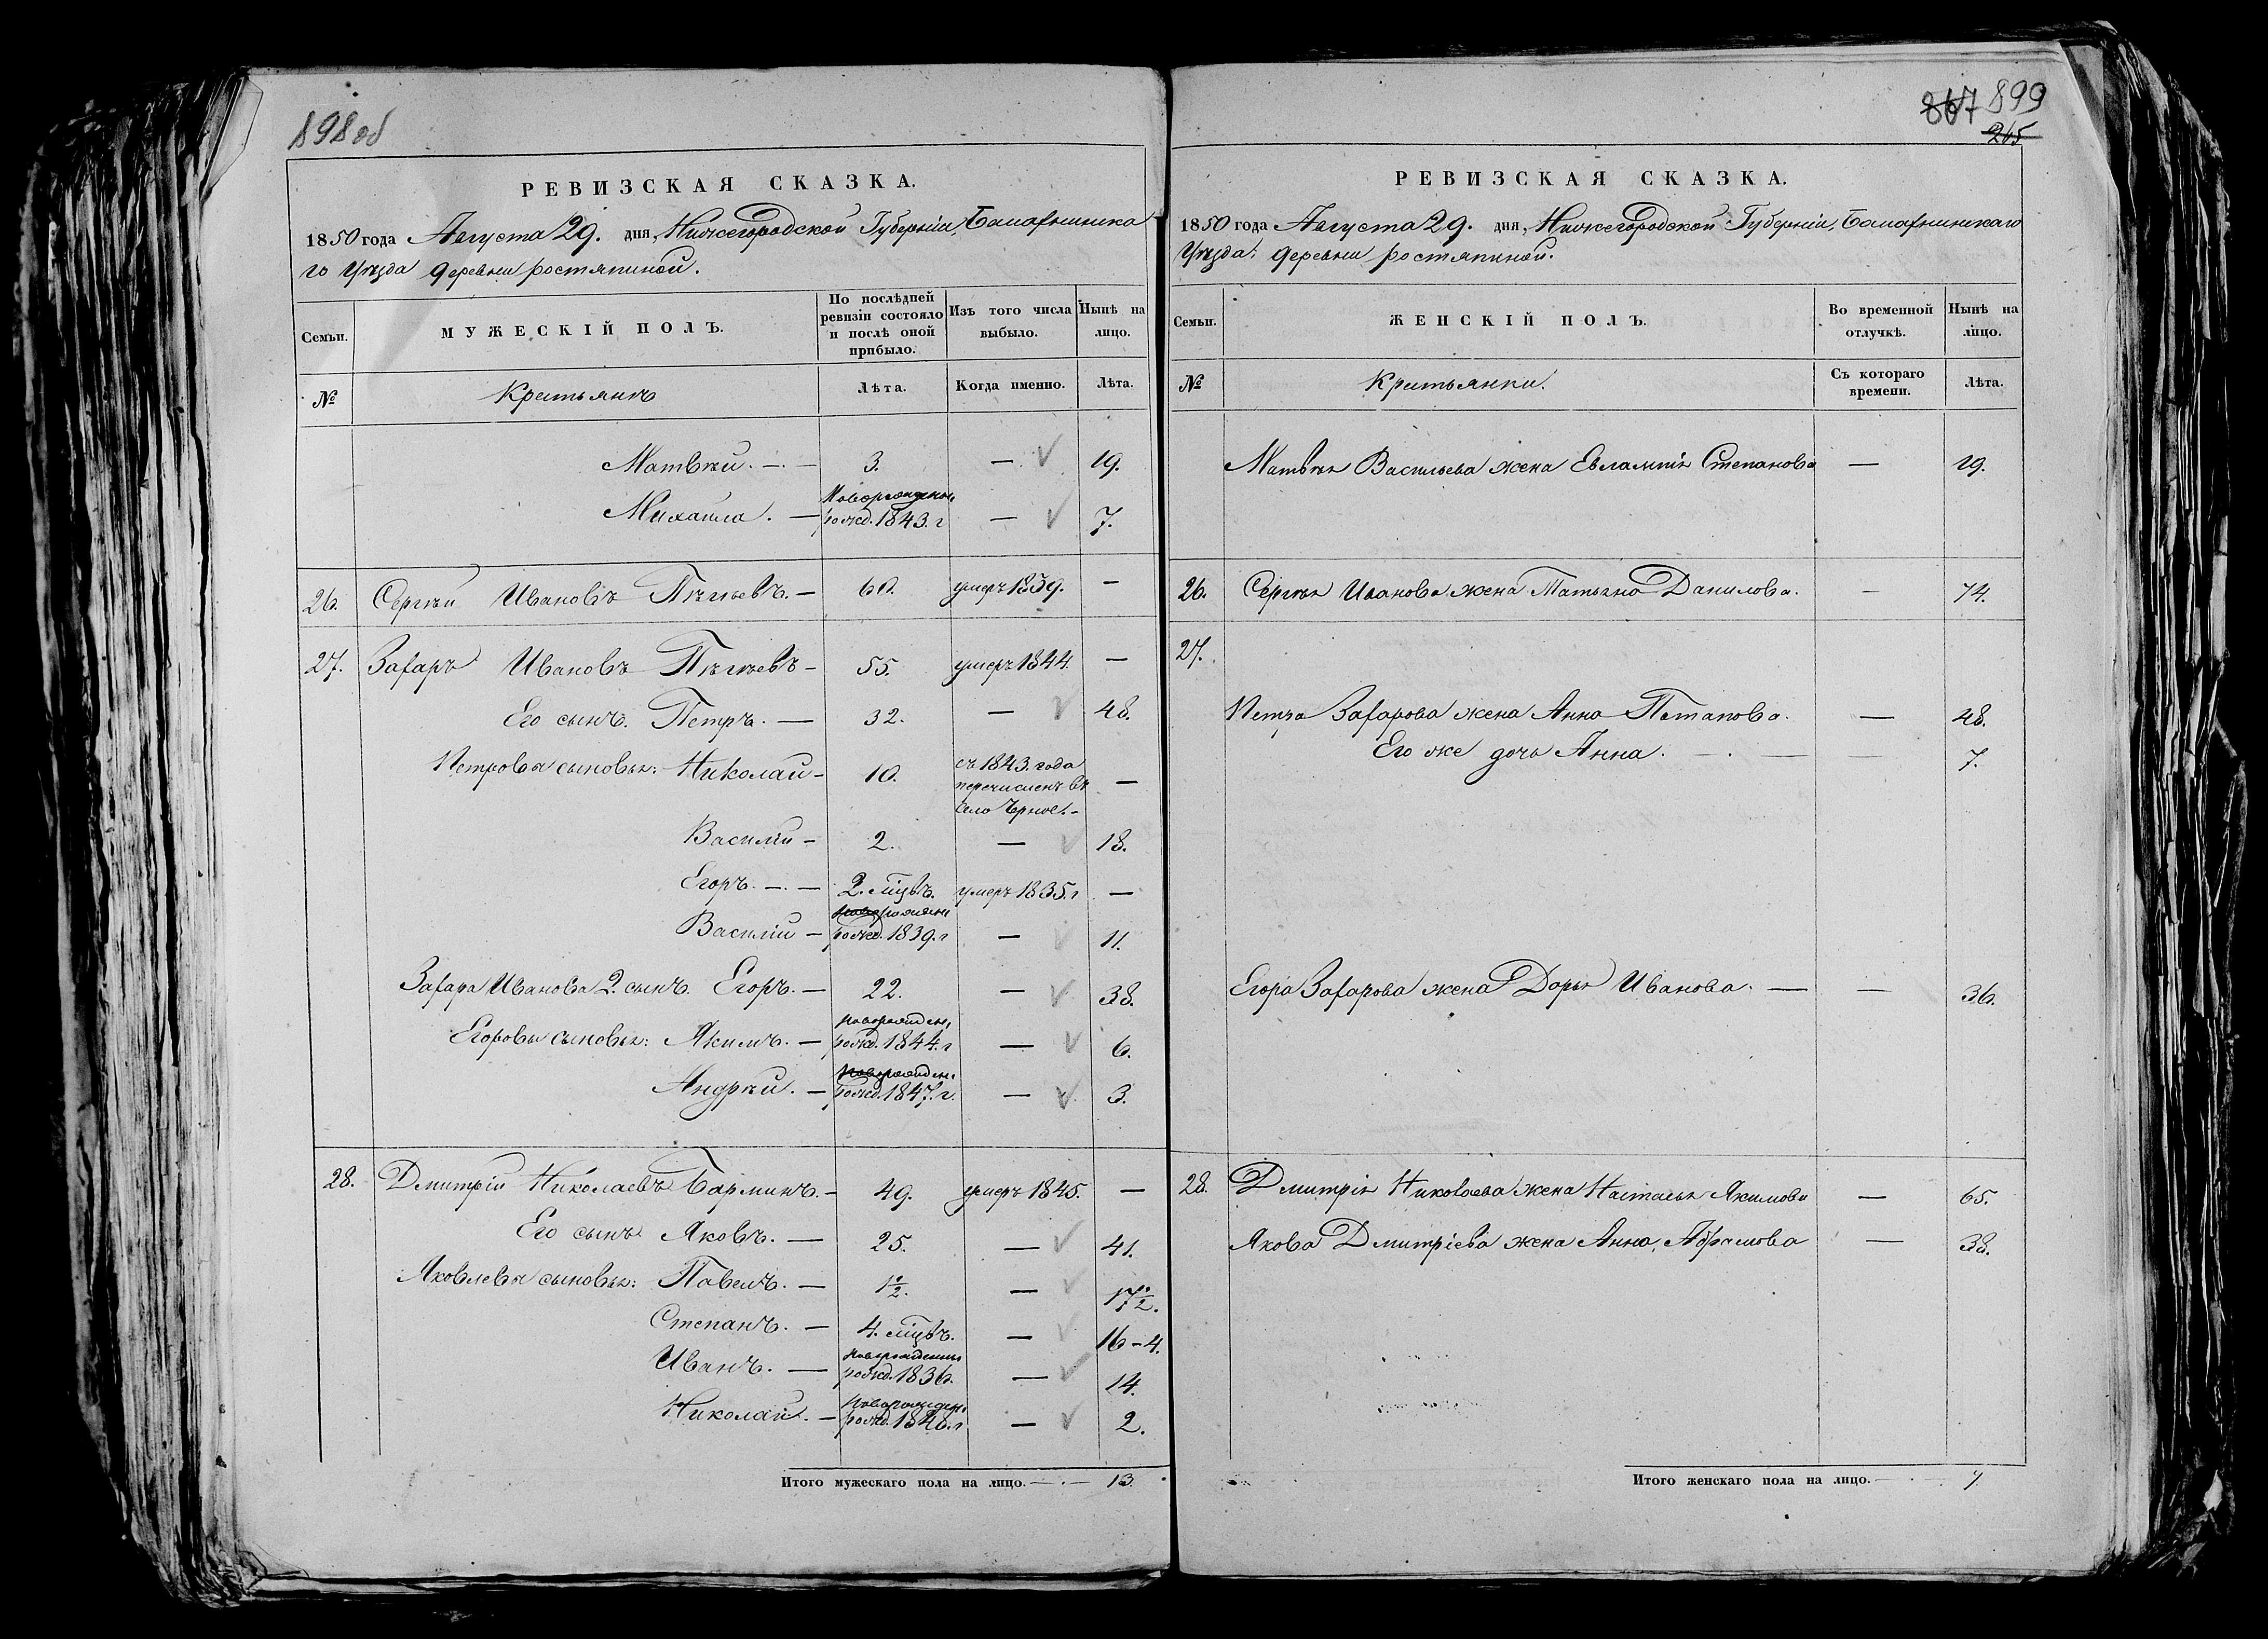 898 об
РЕВИЗСКАЯ СКАЗКА.
1850 года Августа 29. дня, Нижегородской Губерніи, Балахнинска
го Уѣзда деревни ростяпиной.
Семьи.
МУЖЕСКІЙ ПОЛЪ.
По послѣдней ревизіи состояло и послѣ оной прибыло.
Изъ того числа выбыло.
Нынѣ на лицо.
№ Крестьянъ Лѣта. Когда именно. Лѣта.
Матвѣй. — 3. — 19.
Новорожден
Михайла. — рожд. 1843. г — 7.
26. Сергѣй Ивановъ Пѣгѣевъ. — 60. умеръ 1839. —
27. Захаръ Ивановъ Пѣгѣевъ — 55. умеръ 1844. —
Его сынъ. Петръ. — 32. — 48.
Петровы сыновья: Николай — 10. съ 1843. года перечисленъ въ село Черное. —
Василій — 2. — 18.
Егоръ. — 2. мцъ. умеръ 1835. г —
Василій — рожд. 1839. г — 11.
Захара Иванова 2. сынъ. Егоръ. — 22. — 38.
новорожден,
Егоровы сыновья: Якимъ. — рожд. 1844. г — 6.
новорожден.
Андрѣй. — рожд. 1847. г. — 3.
28. Дмитрій Николаевъ Барминъ. — 49. умеръ 1845. —
Его сынъ Яковъ. — 25. — 41.
Яковлевы сыновья: Павелъ. — 1½. — 17½.
Степанъ. — 4. мцъ. — 16-4.
новорожденъ
Иванъ. — рожд. 1836. — 14.
новорожден.
Николай. — рожд. 1848. г — 2.
Итого мужескаго пола на лицо. — 13.
867 899
265
РЕВИЗСКАЯ СКАЗКА.
1850 года Августа 29. дня, Нижегородской Губерніи, Балахнинскаго
Уѣзда, деревни ростяпиной.
Семьи.
ЖЕНСКІЙ ПОЛЪ.
Во временной отлучкѣ.
Нынѣ на лицо.
№ Крестьянки. Съ котораго времени. Лѣта.
Матвѣя Васильева жена Евлампія Степанова — 19.
26. Сергѣя Иванова жена Татьяна Данилова. — 74.
27.
Петра Захарова жена Анна Потапова. — 48.
Его же дочь Анна. — 7.
Егора Захарова жена Дарья Иванова. — 36.
28. Дмитрія Николаева жена Настасья Якимова — 65.
Якова Дмитріева жена Анна Абрамова — 38.
Итого женскаго пола на лицо. — 7.